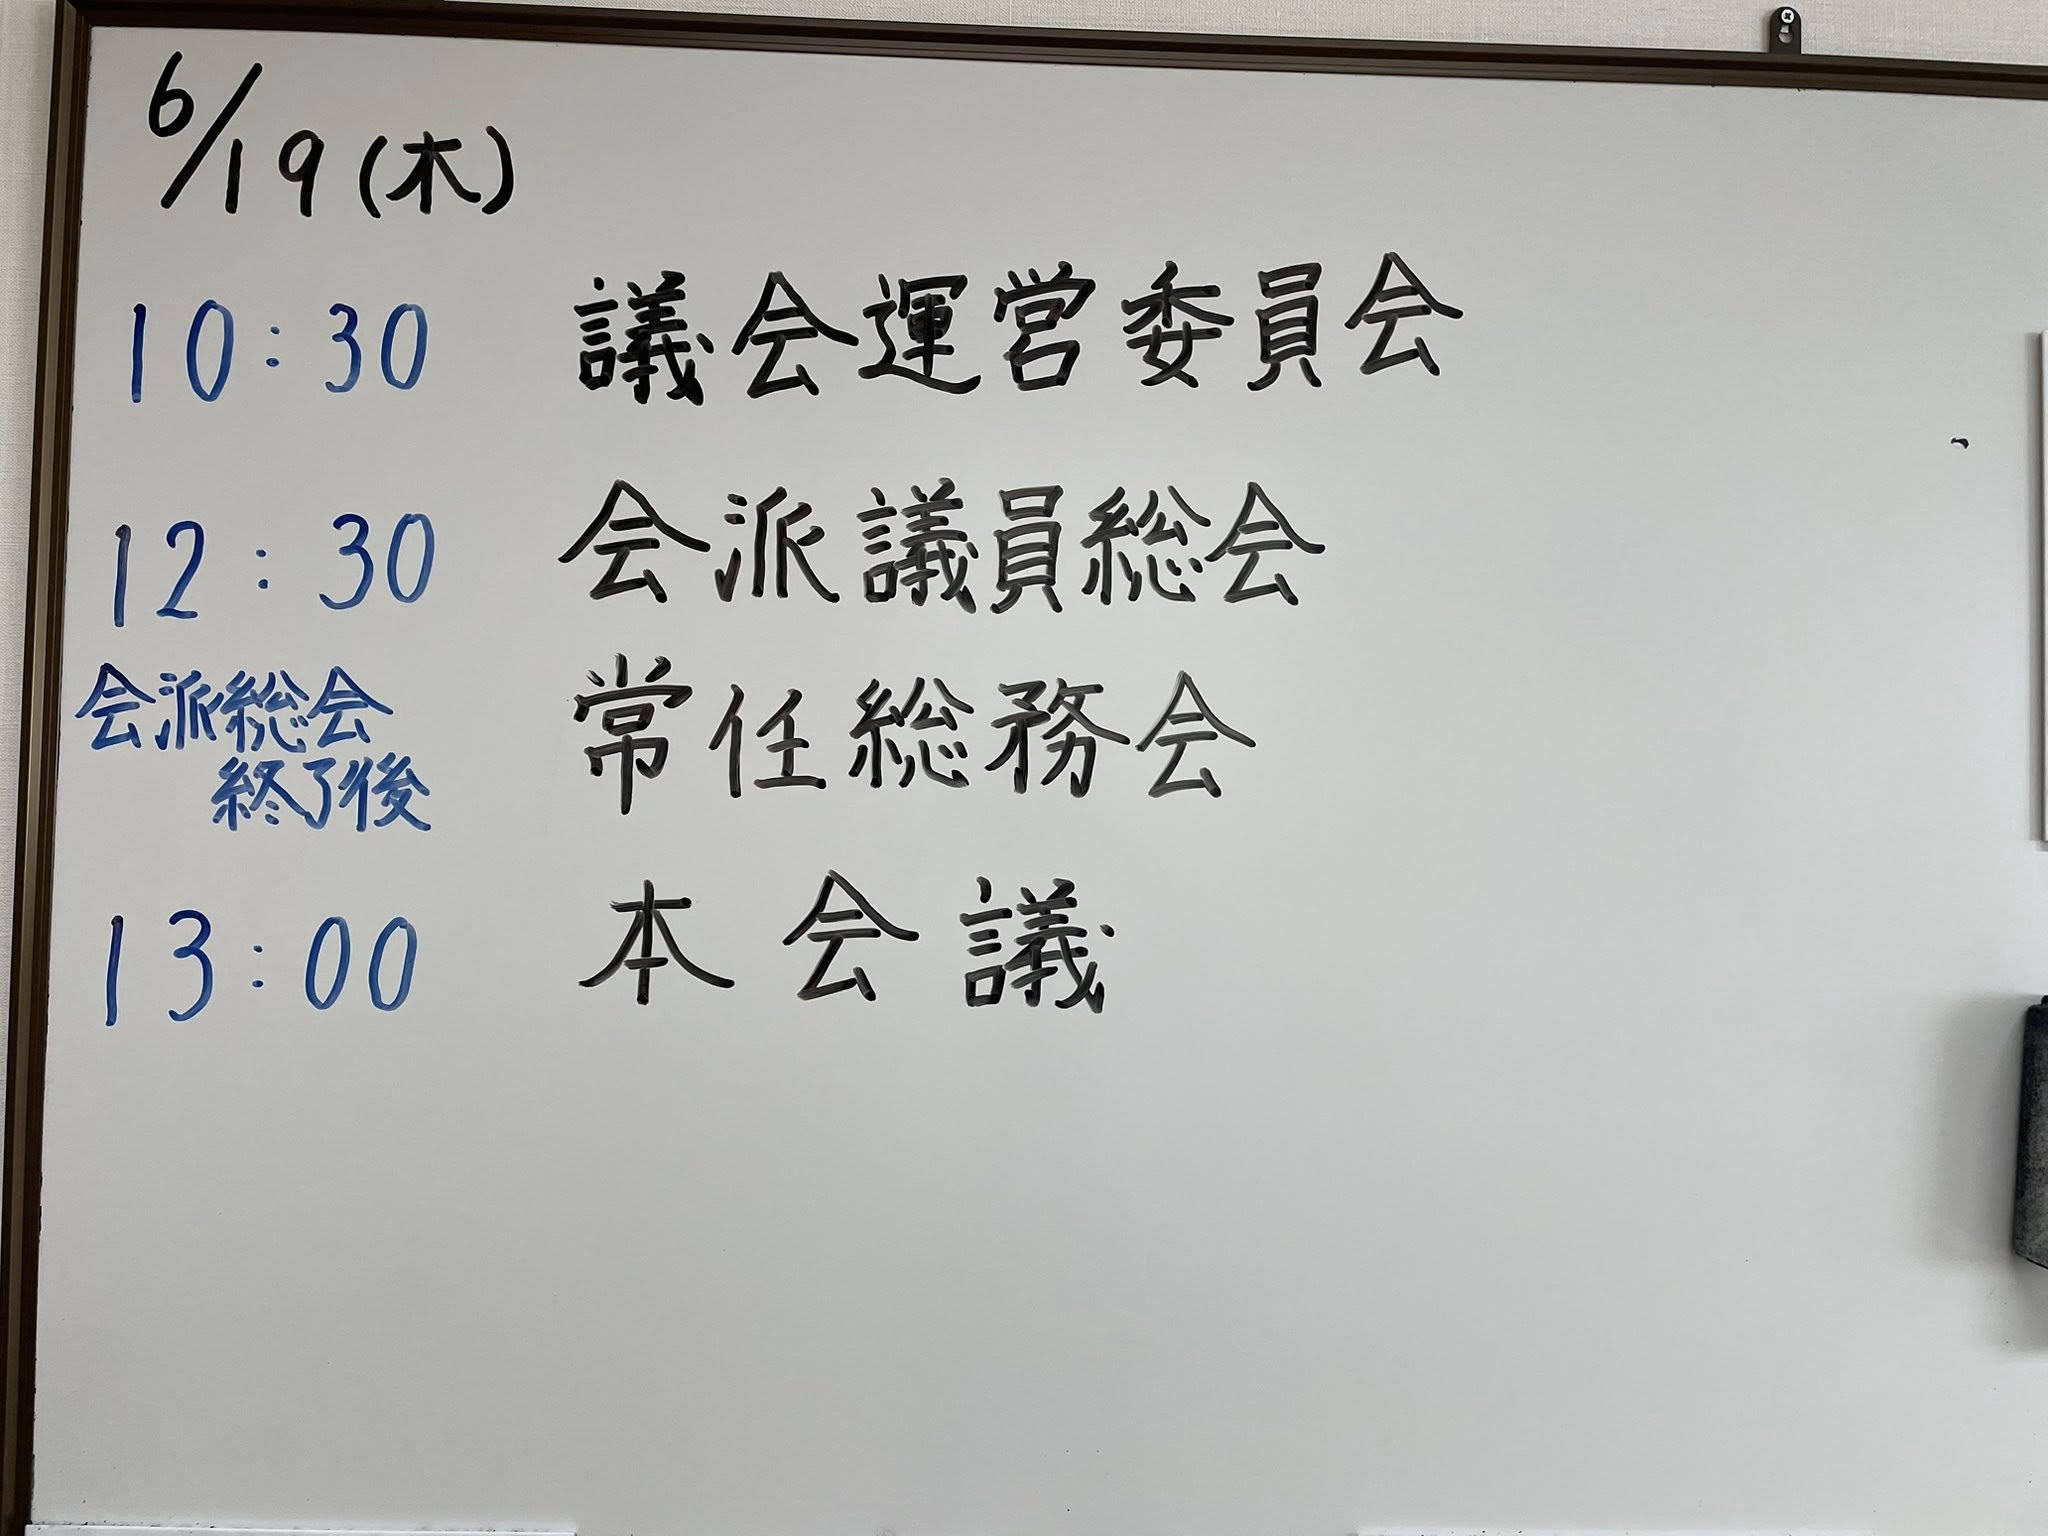 6/19(木)
10:30 議会運営委員会
12:30 会派議員総会
会派総会
終了後 常任総務会
13:00 本会議